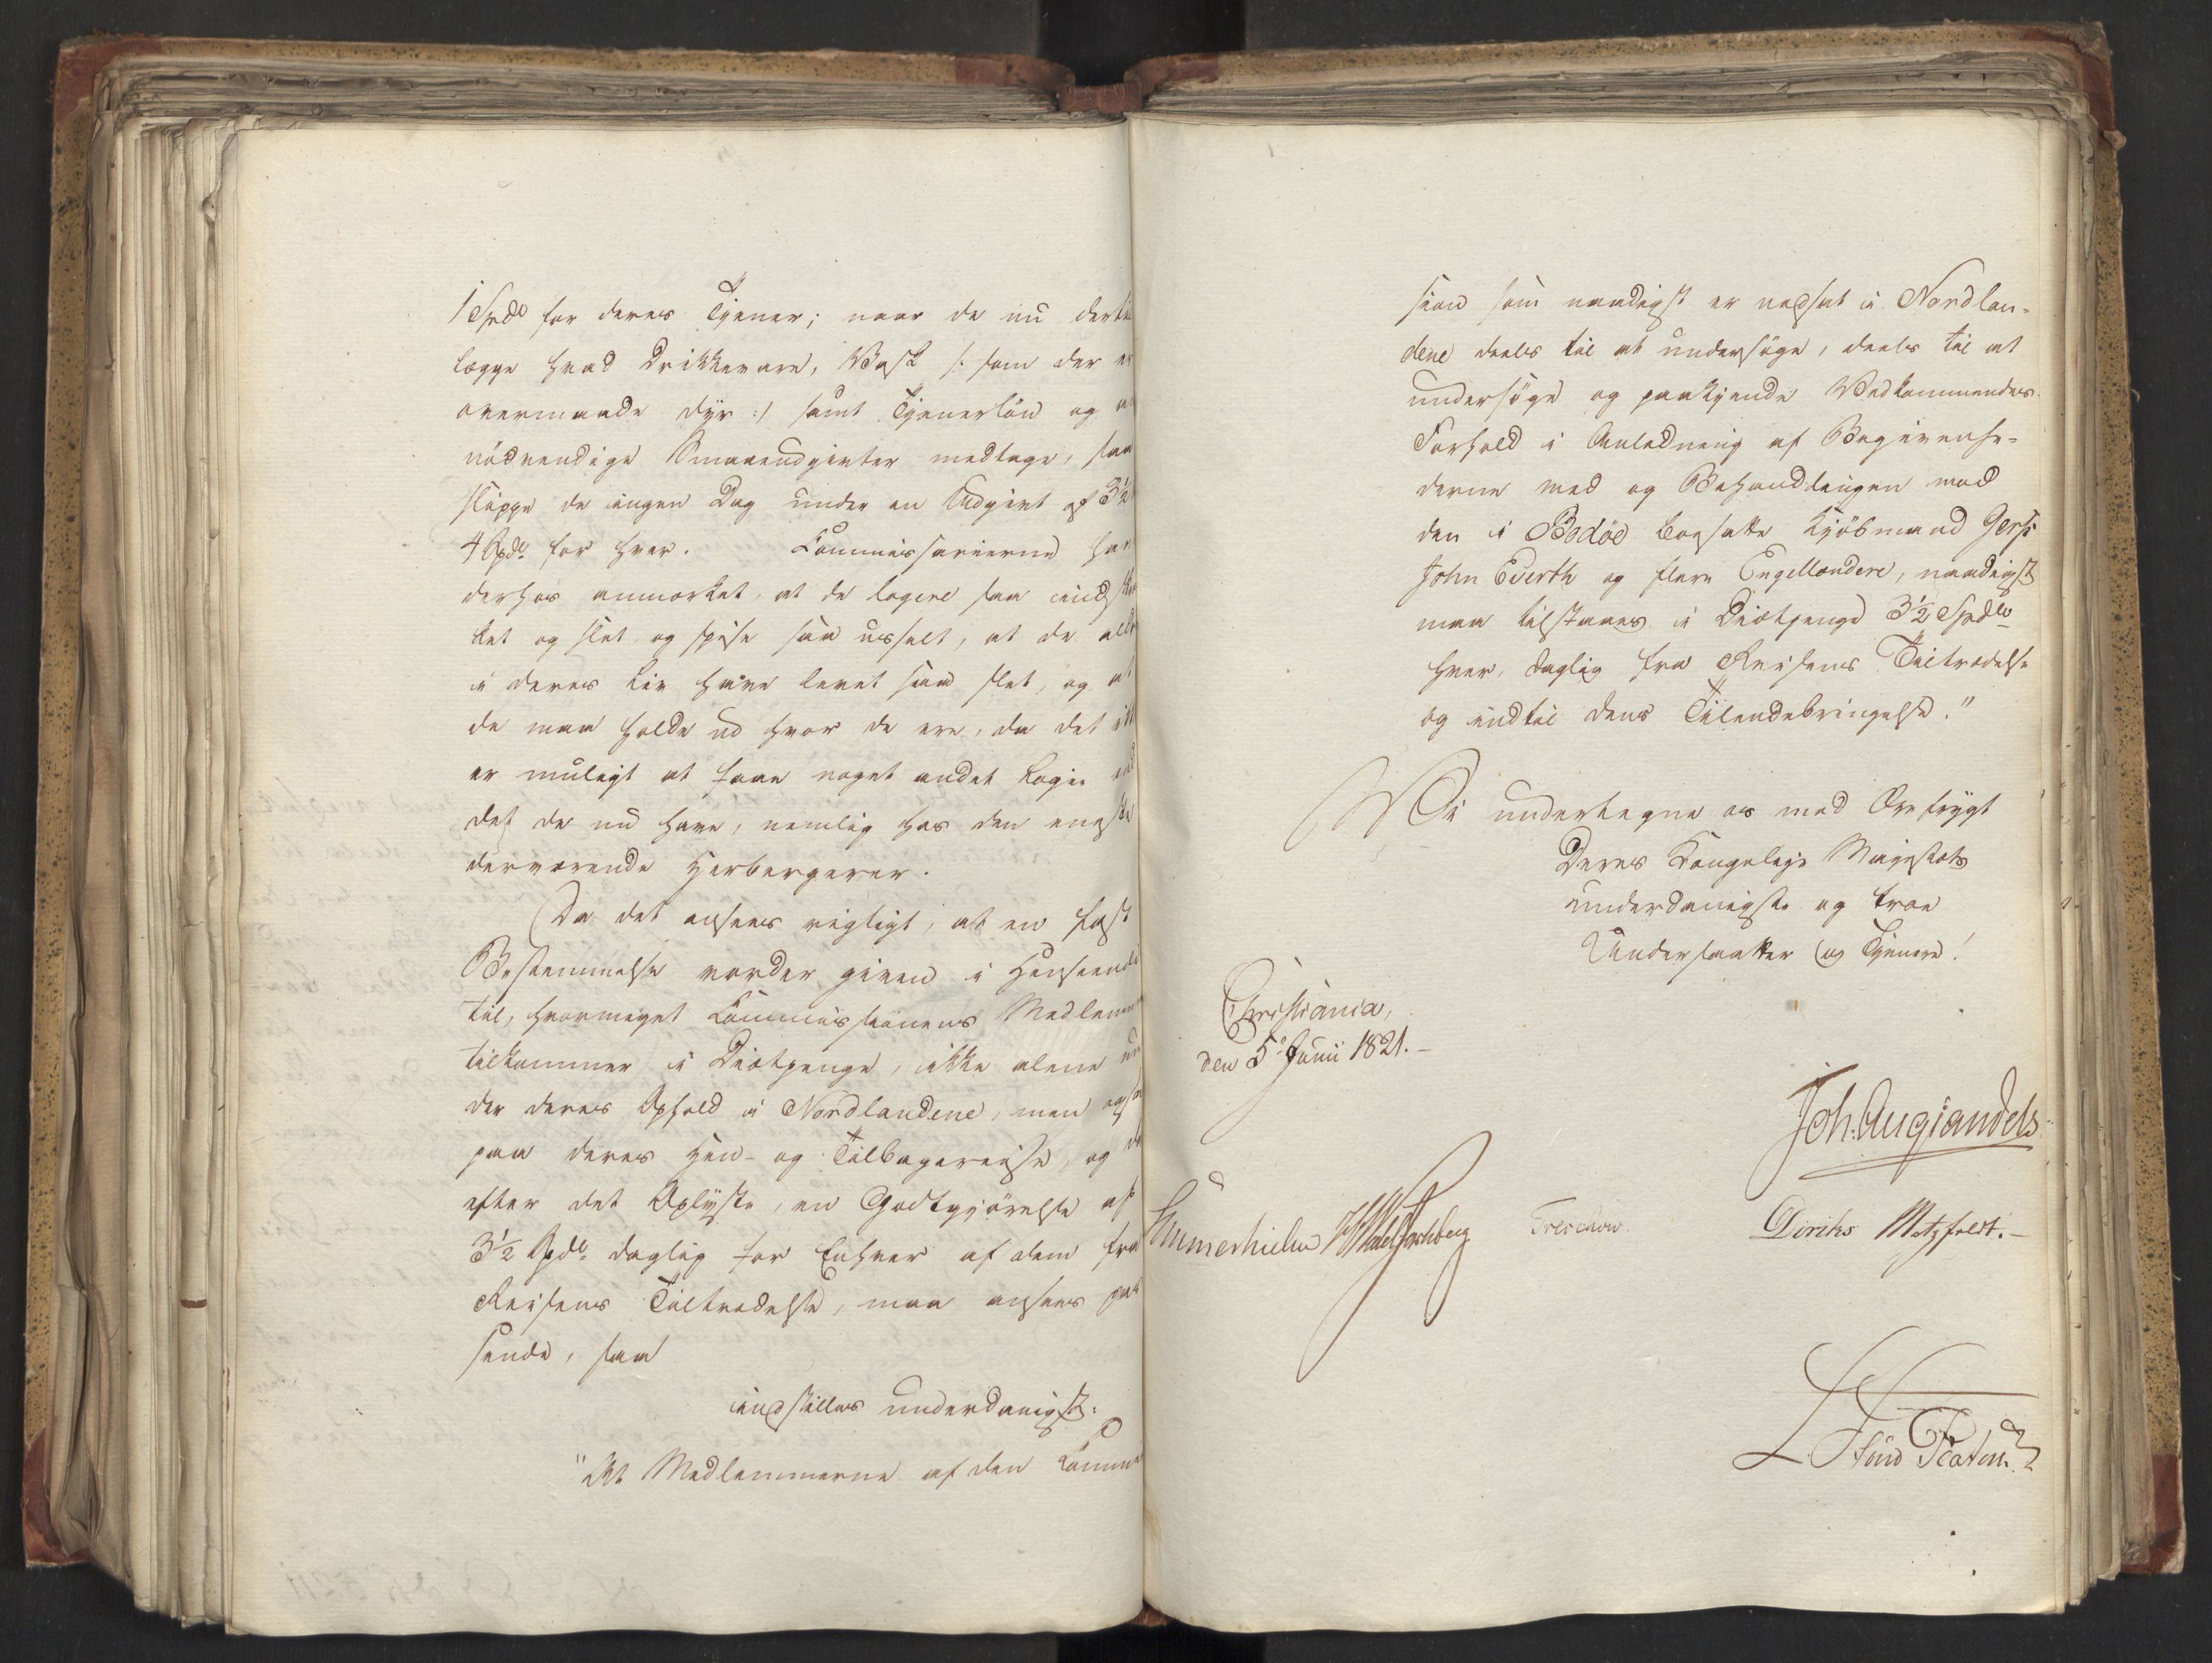 1 Spd for deres Tjener; naar de nu dertil
lægge hvad Drikkevare, Vask /: som der er
overmaade dyr :/ samt Tjenerløn og a
nödvendige Smaaeudgivter medtage, saa
slippe de ingen Dag under en Udgivt af 3½
4 Spd for hver. Commissairerne har
derhos anmærket, at de logere saa indskræn
ket og slet og spise saa usselt, at de aldr
i deres Liv have levet saa slet, og at
de maa holde ud hvor de ere, da det ikk
er muligt at faae noget andet Logie end
det de nu have, nemlig hos den eneste
derværende Herbergerer.
Da det ansees vigtigt, at en fast
Bestemmelse vorder given i Henseende
til, hvormeget Commissionens Medlemm
tilkommer i Diætpenge, ikke alene un
der deres Ophold i Nordlandene, men ogsa
paa deres Hen- og Tilbagereise, og da
efter det Oplyste, en Godtgjörelse af
3½ Spd daglig for Enhver af dem fra
Reisens Tiltrædelse, maa ansees pas
sende, saa
indstilles underdanigst:
"At Medlemmerne af den Commis
sion som naadigst er nedsat i Nordlan-
dene deels til at undersöge, deels til at
undersöge og paakjende Vedkommendes
Forhold i Anledning af Begivenhe-
derne med og Behandlingen mod
den i Bodöe bosatte Kjöbmand
John Everth og flere Engellændere, naadigst
maa tilstaaes i Diætpenge 3½ Spd
hver, daglig fra Reisens Tiltrædelse
og indtil dens Tilendebringelse."
Vi undertegne os med Ærefrygt
Deres Kongelige Majestæts
underdanigste og troe
Undersaatter og Tjenere!
Christiania,
den 5 Junii 1821.
Joh. Aug Sandels
Sommerhielm Treschow Diriks Motzfeldt.